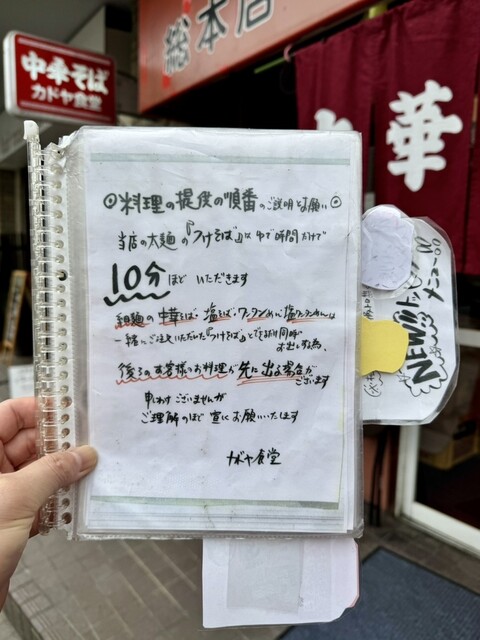 総本店
中華そば
カドヤ食堂
華
◎料理の提供の順番のご説明とお願い◎
当店の太麺の『つけそば』はゆで時間だけで
10分ほどいただきます
細麺の中華そば・塩そば・ワンタンめん・塩ワンタンめんは
一緒にご注文いただいた『つけそば』とできるだけ同時に
お出しする為、
後らのお客様のお料理が先に出る場合が
ございます
申しわけございませんが
ご理解のほど宜しくお願いいたします
カドヤ食堂
NEW!!!
メニュー